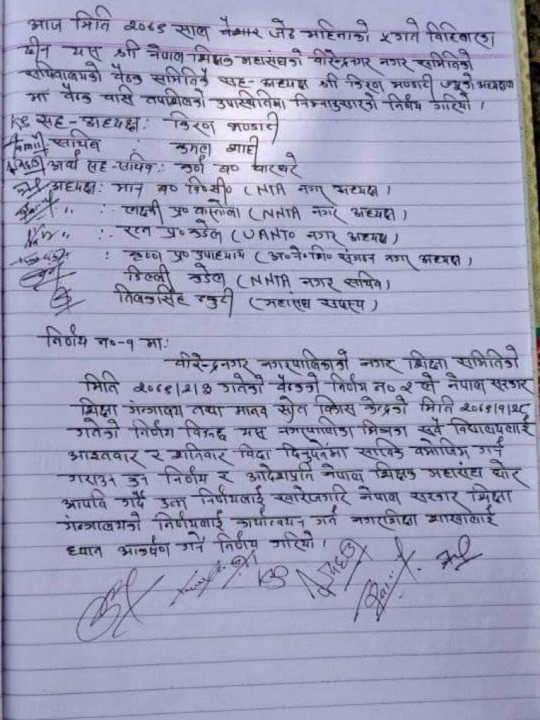 आज मिति २०७९ साल जेठ महिनाको ५ गते विहिवारका
दिन यस श्री नेपाल शिक्षक महासंघको वीरेन्द्रनगर नगर समितिको
सचिवालयको बैठक समितिकै सह-अध्यक्ष श्री किरण भण्डारी ज्यूको अध्यक्षता
मा बैठक वसि तपशिलको उपस्थितिमा निम्नानुसारको निर्णय गरियो ।
KB सह-अध्यक्ष: किरण भण्डारी
सचिव : कमला शाही
अर्का सह-सचिव: कर्ण ब०
अध्यक्ष: मान ब० वि०सी० (NTA नगर अध्यक्ष)
" : लक्ष्मी प्र० (NNTA नगर अध्यक्ष)
" : रत्न प्र० कडेल (UANTO नगर अध्यक्ष)
: कृष्ण प्र० उपाध्याय (अ०ने०शि० संगठन नगर अध्यक्ष)
डिल्ली कडेल (NNTA नगर सचिव)
तिलकसिंह (महासंघ सदस्य)
निर्णय न०-१ मा:
वीरेन्द्रनगर नगरपालिकाको नगर शिक्षा समितिको
मिति २०७९/२/३ गतेको बैठकको निर्णय न० २ ले नेपाल सरकार
शिक्षा मन्त्रालय तथा मानव स्रोत विकास केन्द्रको मिति २०७९/१/२८
गतेको निर्णय विरुद्ध यस नगरपालिका भित्रका सबै विद्यालयलाई
आइतवार र शनिवार विदा दिनुपर्नेमा साविक बमोजिम गर्ने
गराउने कुन निर्णय र आदेशप्रति नेपाल शिक्षक महासंघ घोर
आपत्ति गर्दै उक्त निर्णयलाई खारेजगरि नेपाल सरकार शिक्षा
मन्त्रालयको निर्णयलाई कार्यान्वयन गर्न नगरशिक्षा शाखालाई
ध्यान आकर्षण गर्ने निर्णय गरियो ।
KB